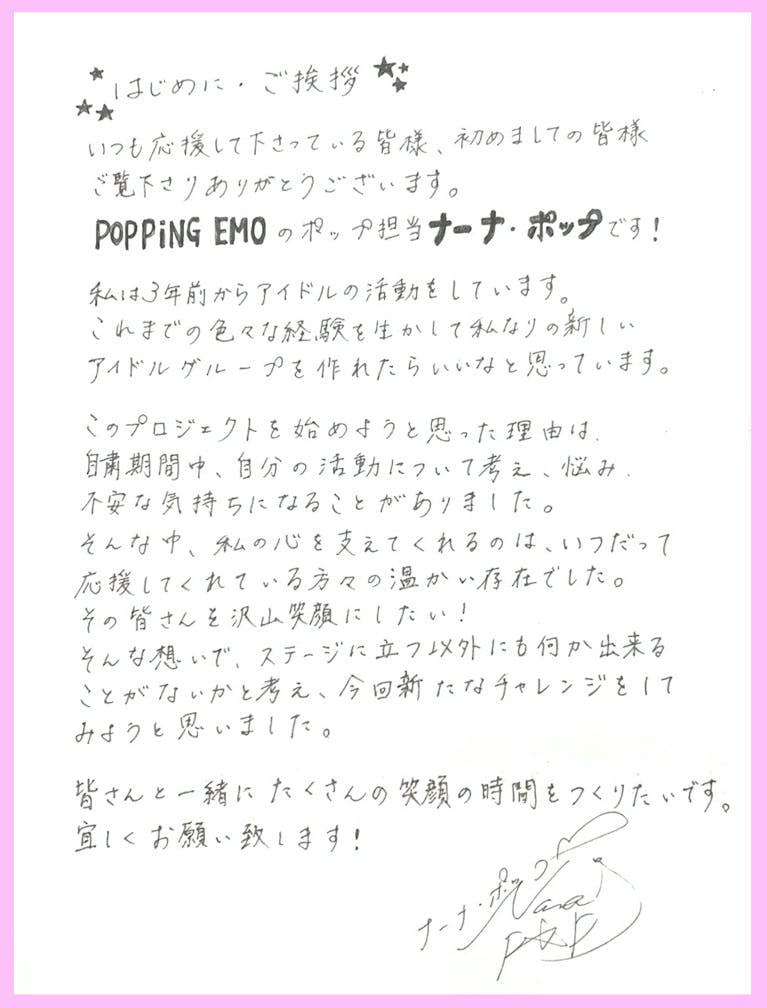 はじめに・ご挨拶
いつも応援して下さっている皆様、初めましての皆様
ご覧下さりありがとうございます。
POPPiNG EMOのポップ担当ナーナ・ポップです！
私は3年前からアイドルの活動をしています。
これまでの色々な経験を生かして私なりの新しい
アイドルグループを作れたらいいなと思っています。
このプロジェクトを始めようと思った理由は、
自粛期間中、自分の活動について考え、悩み、
不安な気持ちになることがありました。
そんな中、私の心を支えてくれるのは、いつだって
応援してくれている方々の温かい存在でした。
その皆さんを沢山笑顔にしたい！
そんな想いで、ステージに立つ以外にも何か出来る
ことがないかと考え、今回新たなチャレンジをして
みようと思いました。
皆さんと一緒にたくさんの笑顔の時間をつくりたいです。
宜しくお願い致します！
ナーナ・ポップ
Nana